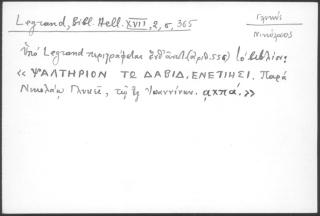 Legrand, Bibl. Hell. XVII, 2, σ, 365
Γλυκύς
Νικόλαος
Ὑπὸ Legrand περιγράφεται ἐνθ' ἀνωτ. (ἀριθ. 556) τὸ βιβλίον:
« ΨΑΛΤΗΡΙΟΝ ΤΩ ΔΑΒΙΔ. ΕΝΕΤΙΗΣΙ. Παρὰ
Νικολάῳ Γλυκεῖ, τῷ ἐξ Ἰωαννίνων. αχπά. »